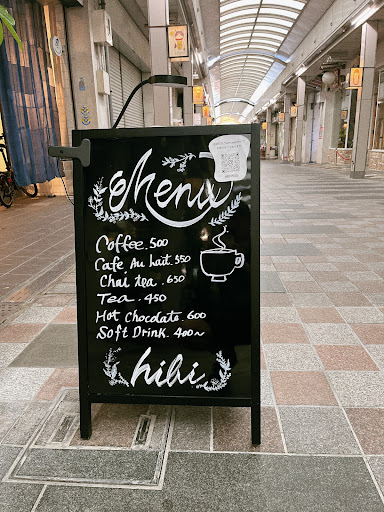 Menu
Coffee. 500
Cafe Au hait. 550
Chai tea. 650
Tea. 450
Hot Chocdate. 600
Soft Drink. 400~
hibi